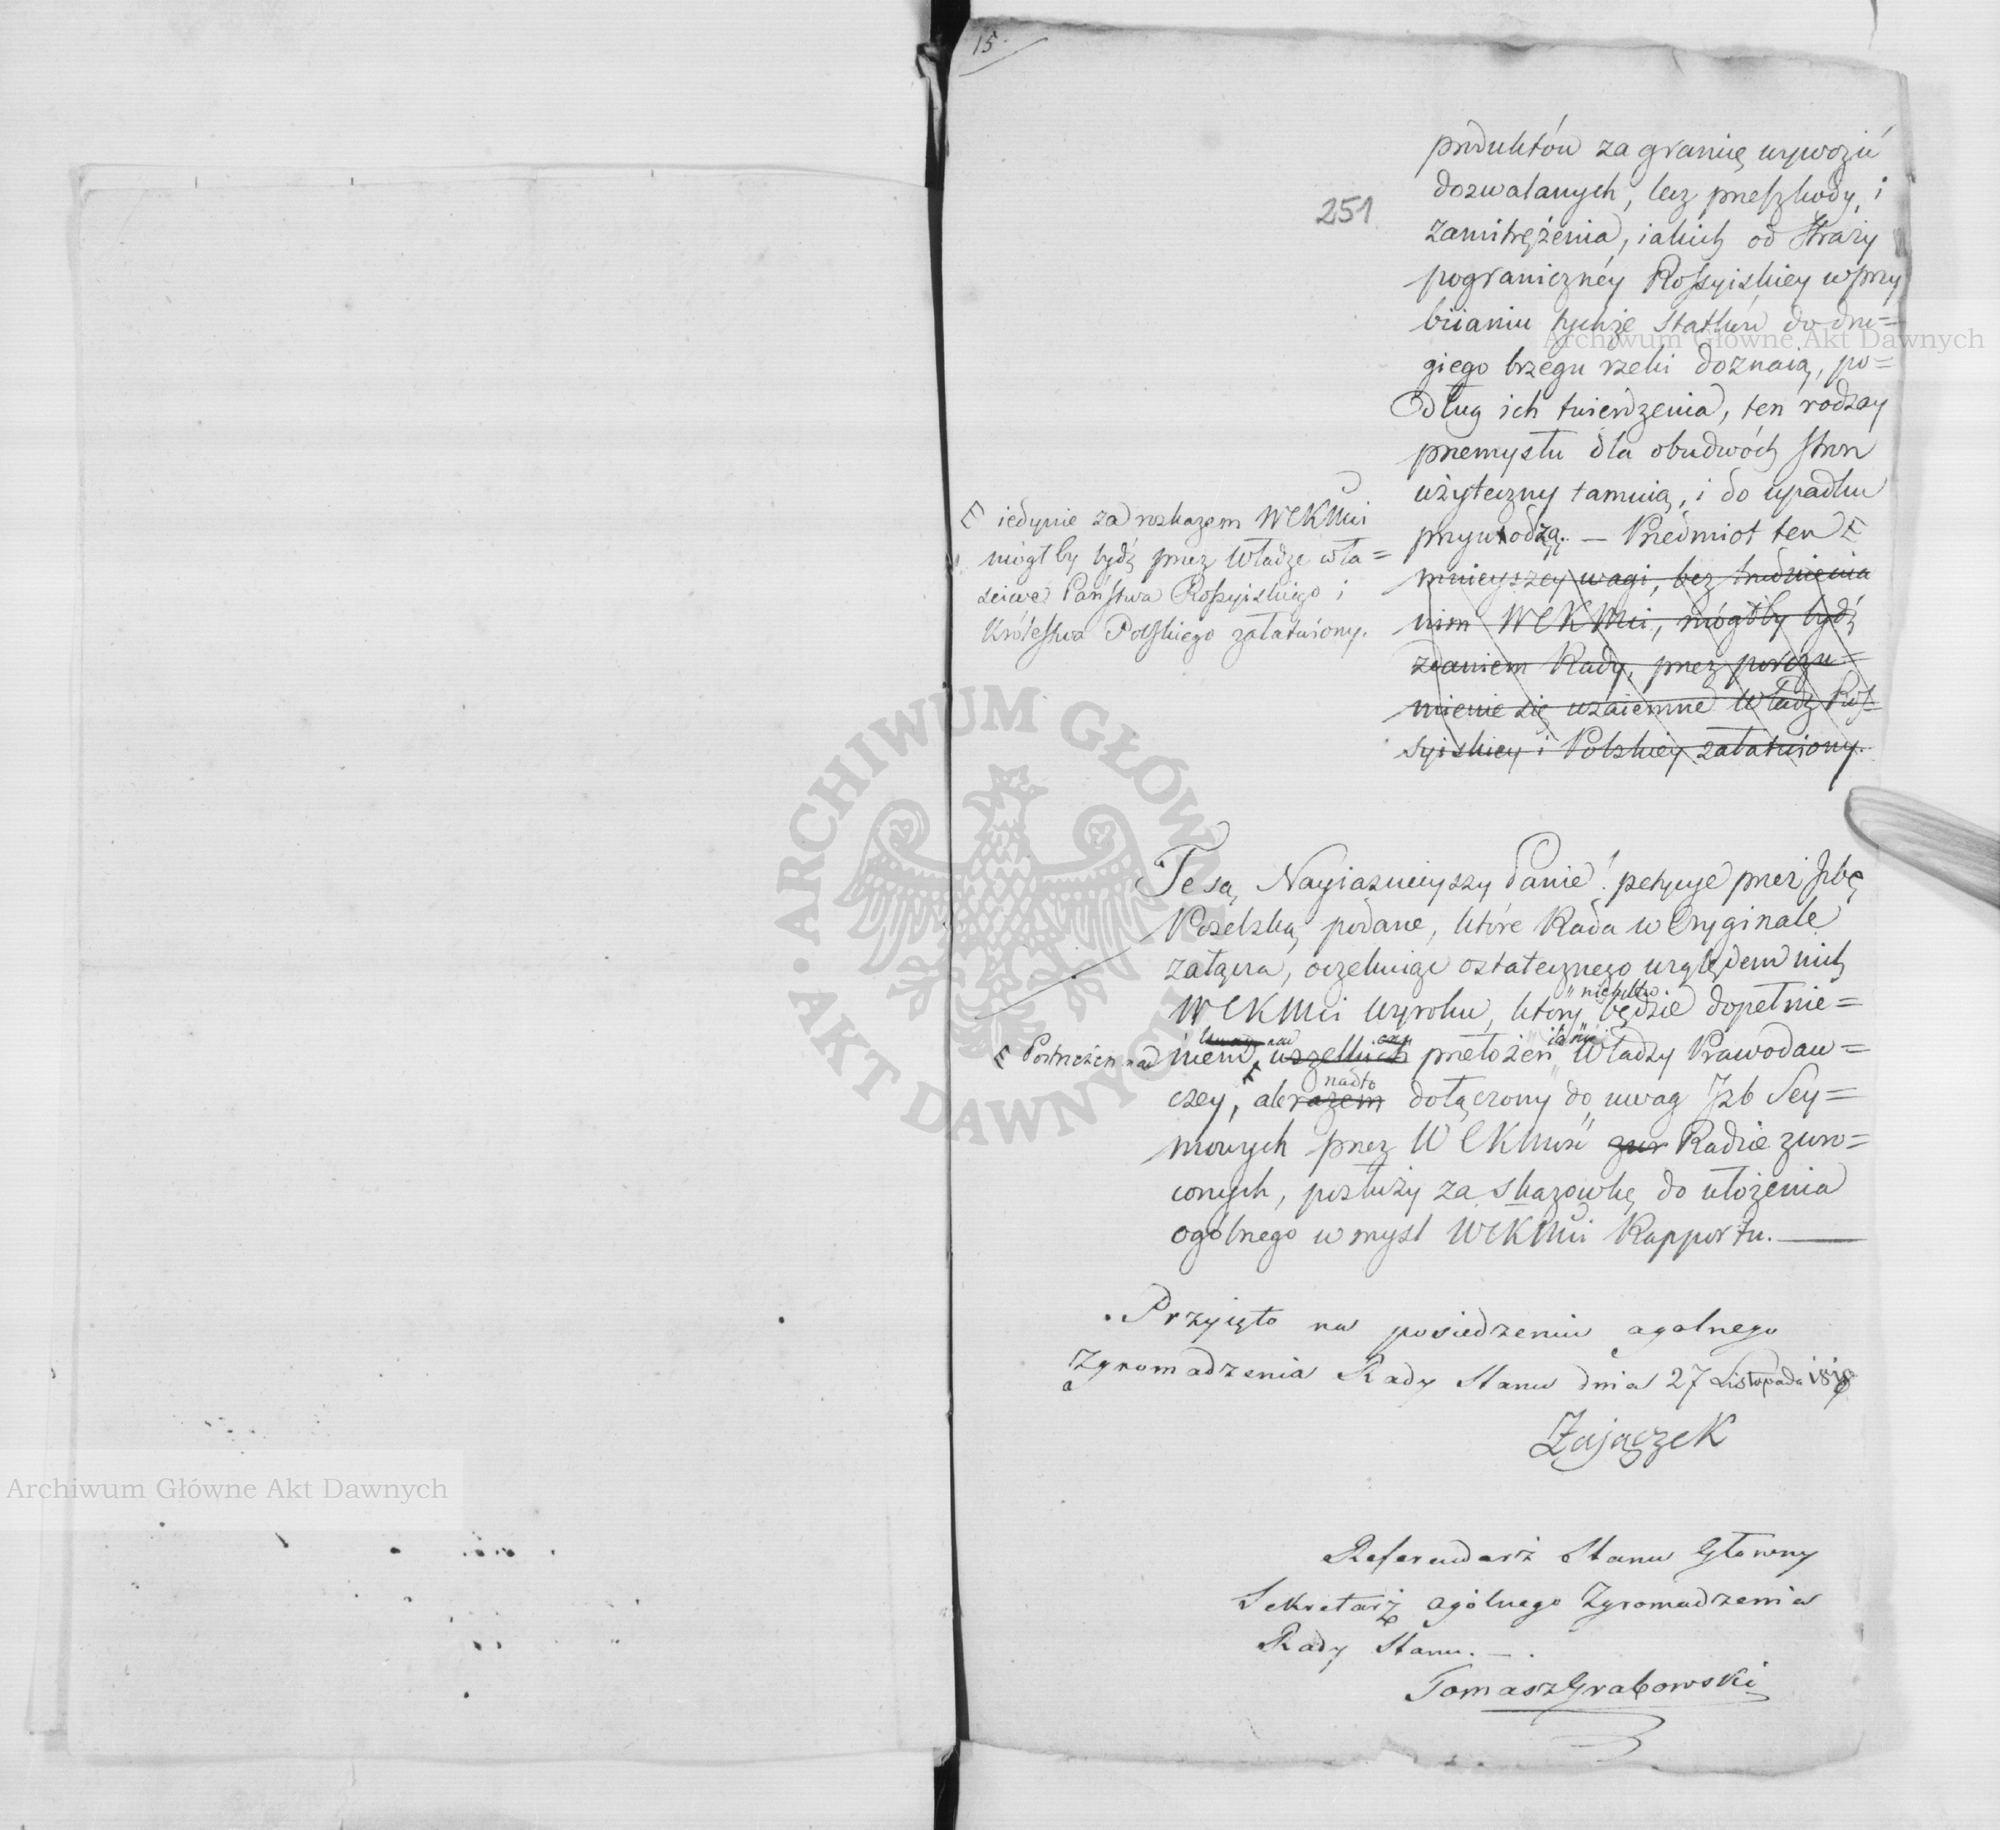 15.
251
produktów za granicę wywozić
dozwalanych, lecz przeszkody, i
zamitrężenia, iakich od Straży
pograniczney Rossyiskiey w przy
biianiu tychże statków do dru=
giego brzegu rzeki doznaią, po=
dług ich twierdzenia, ten rodzay
przemysłu dla obudwóch stron
użyteczny tamuią, i do upadku
przywodzą. — Przedmiot ten E
mnieyszey wagi, bez trudnienia
nim WCKMci, mógłby bydź
zdaniem Rady, przez porozu=
mienie się wzaiemne Władz Ros=
syiskiey i Polskiey załatwiony.
E iedynie za rozkazem WCKMci
mógłby bydź przez Władze wła=
sciwe Państwa Rossyiskiego i
Królestwa Polskiego załatwiony.
Te są, Nayiaśnieyszy Panie! petycye przez Izbę
Poselską podane, które Rada w Oryginale
załącza, oczekuiąc ostatecznego względem nich
WCKMci wyroku, który będzie dopełnie=
nietylko
E Postrzeżeń nad
niem, wszelkich przełożeń Władzy Prawodaw=
czey, ale razem dołączony do uwag Izb Sey=
nadto
mowych przez WCKMość Radzie zwró=
conych, posłuży za skazówkę do ułożenia
ogólnego w myśl WCKMci Rapportu. —
Przyięto na posiedzeniu ogolnego
Zgromadzenia Rady Stanu dnia 27 Listopada 1818
Zajączek
Referendarz Stanu Głowny
Sekretarz ogólnego Zgromadzenia
Rady Stanu. —
Tomasz Grabowski
Archiwum Główne Akt Dawnych
Archiwum Główne Akt Dawnych
ARCHIWUM GŁÓWNE AKT DAWNYCH